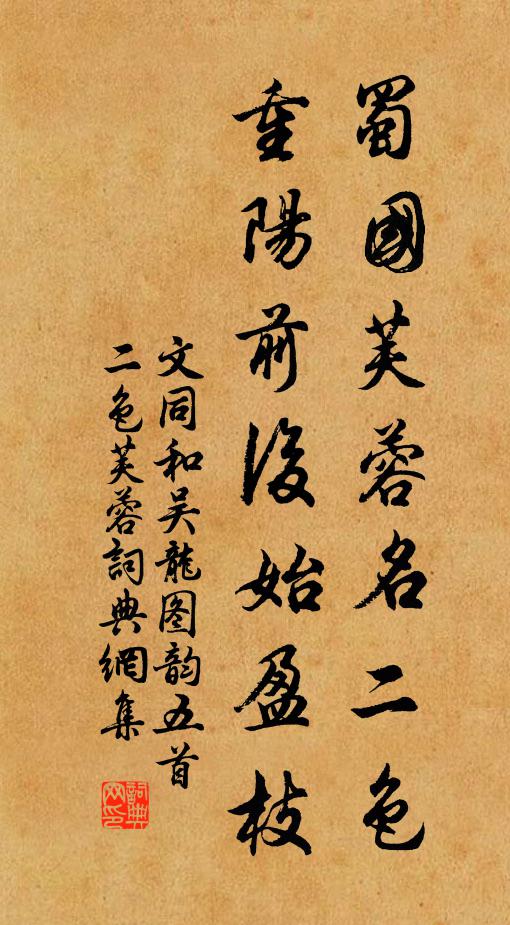 蜀國芙蓉名二色
重陽前後始盈枝
文同和吴龍图韵五首
二色芙蓉詞典網集
詞典
网印